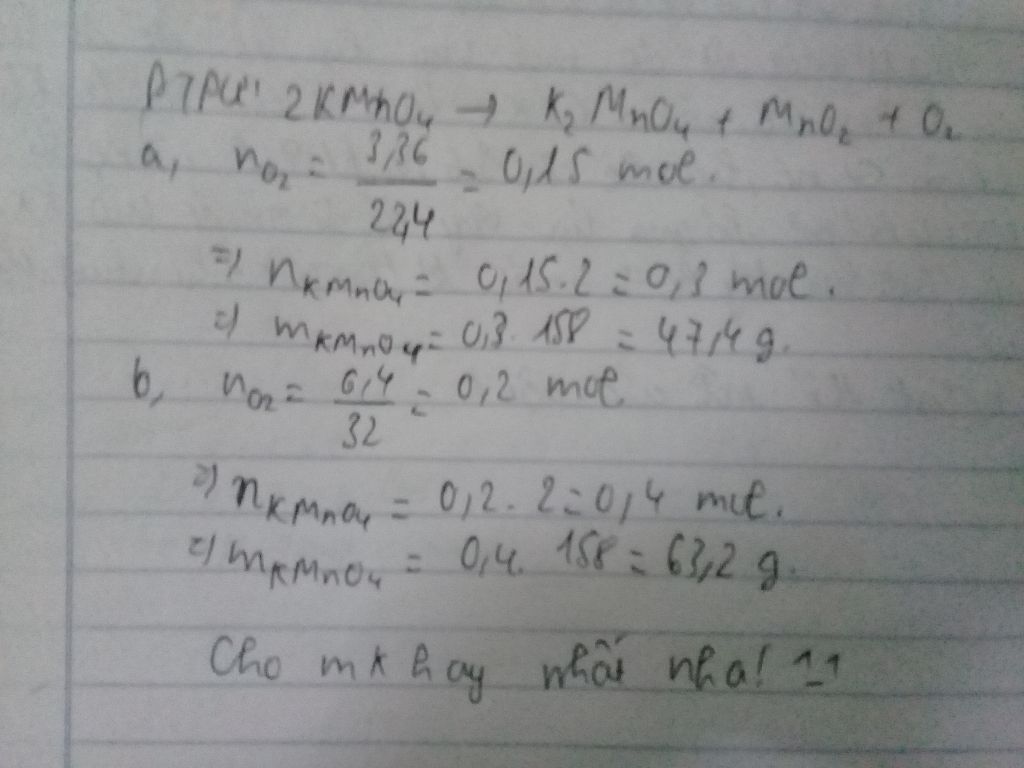 PTPƯ: 2KMnO₄ → K₂MnO₄ + MnO₂ + O₂
a, nO₂ = 3,36/22,4 = 0,15 mol.
=> nKMnO₄ = 0,15.2 = 0,3 mol.
=> mKMnO₄ = 0,3.158 = 47,4 g.
b, nO₂ = 6,4/32 = 0,2 mol
=> nKMnO₄ = 0,2.2 = 0,4 mol.
=> mKMnO₄ = 0,4.158 = 63,2 g.
Cho mk hay nhất nha! ^_^